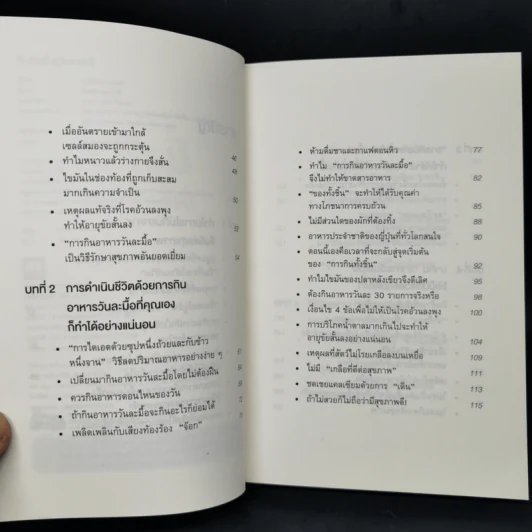 • เมื่ออันตรายเข้ามาใกล้
เซลล์สมองจะถูกกระตุ้น 46
• ทำไมหนาวแล้วร่างกายจึงสั่น 48
• ไขมันในช่องท้องที่ถูกเก็บสะสม
มากเกินความจำเป็น 50
• เหตุผลแท้จริงที่โรคอ้วนลงพุง
ทำให้อายุขัยสั้นลง 52
• “การกินอาหารวันละมื้อ”
เป็นวิธีรักษาสุขภาพอันยอดเยี่ยม 54
บทที่ 2 การดำเนินชีวิตด้วยการกิน
อาหารวันละมื้อที่คุณเอง
ก็ทำได้อย่างแน่นอน
• “การไดเอตด้วยซุปหนึ่งถ้วยและกับข้าว
หนึ่งจาน” วิธีลดปริมาณอาหารอย่างง่าย ๆ
• เปลี่ยนมากินอาหารวันละมื้อโดยไม่ต้องฝืน
• ควรกินอาหารตอนไหนของวัน
• ถ้ากินอาหารวันละมื้อจะกินอะไรก็ย่อมได้
• เพลิดเพลินกับเสียงท้องร้อง “จ๊อก”
• ห้ามดื่มชาและกาแฟตอนหิว 77
• ทำไม “การกินอาหารวันละมื้อ”
จึงไม่ทำให้ขาดสารอาหาร 82
• “ของทั้งชิ้น” จะทำให้ได้รับคุณค่า
ทางโภชนาการครบถ้วน 85
• ไม่มีส่วนใดของผักที่ต้องทิ้ง 88
• อาหารประจำชาติของญี่ปุ่นที่ทั่วโลกสนใจ 90
• ตอนนี้เองคือเวลาที่จะกลับสู่จุดเริ่มต้น
ของ “การกินทั้งชิ้น” 92
• ทำไมไขมันของปลาหลังเขียวจึงดีเลิศ 95
• ต้องกินอาหารวันละ 30 รายการจริงหรือ 98
• เงื่อนไข 4 ข้อเพื่อไม่ให้เป็นโรคอ้วนลงพุง 100
• การบริโภคน้ำตาลมากเกินไปจะทำให้
อายุขัยสั้นลงอย่างแน่นอน 104
• เหตุผลที่สัตว์ไม่โรยเกลือลงบนเหยื่อ 109
• ไม่มี “เกลือที่ดีต่อสุขภาพ” 111
• ชดเชยแคลเซียมด้วยการ “เดิน” 113
• ถ้าไม่สวยก็ไม่ถือว่ามีสุขภาพดี! 115